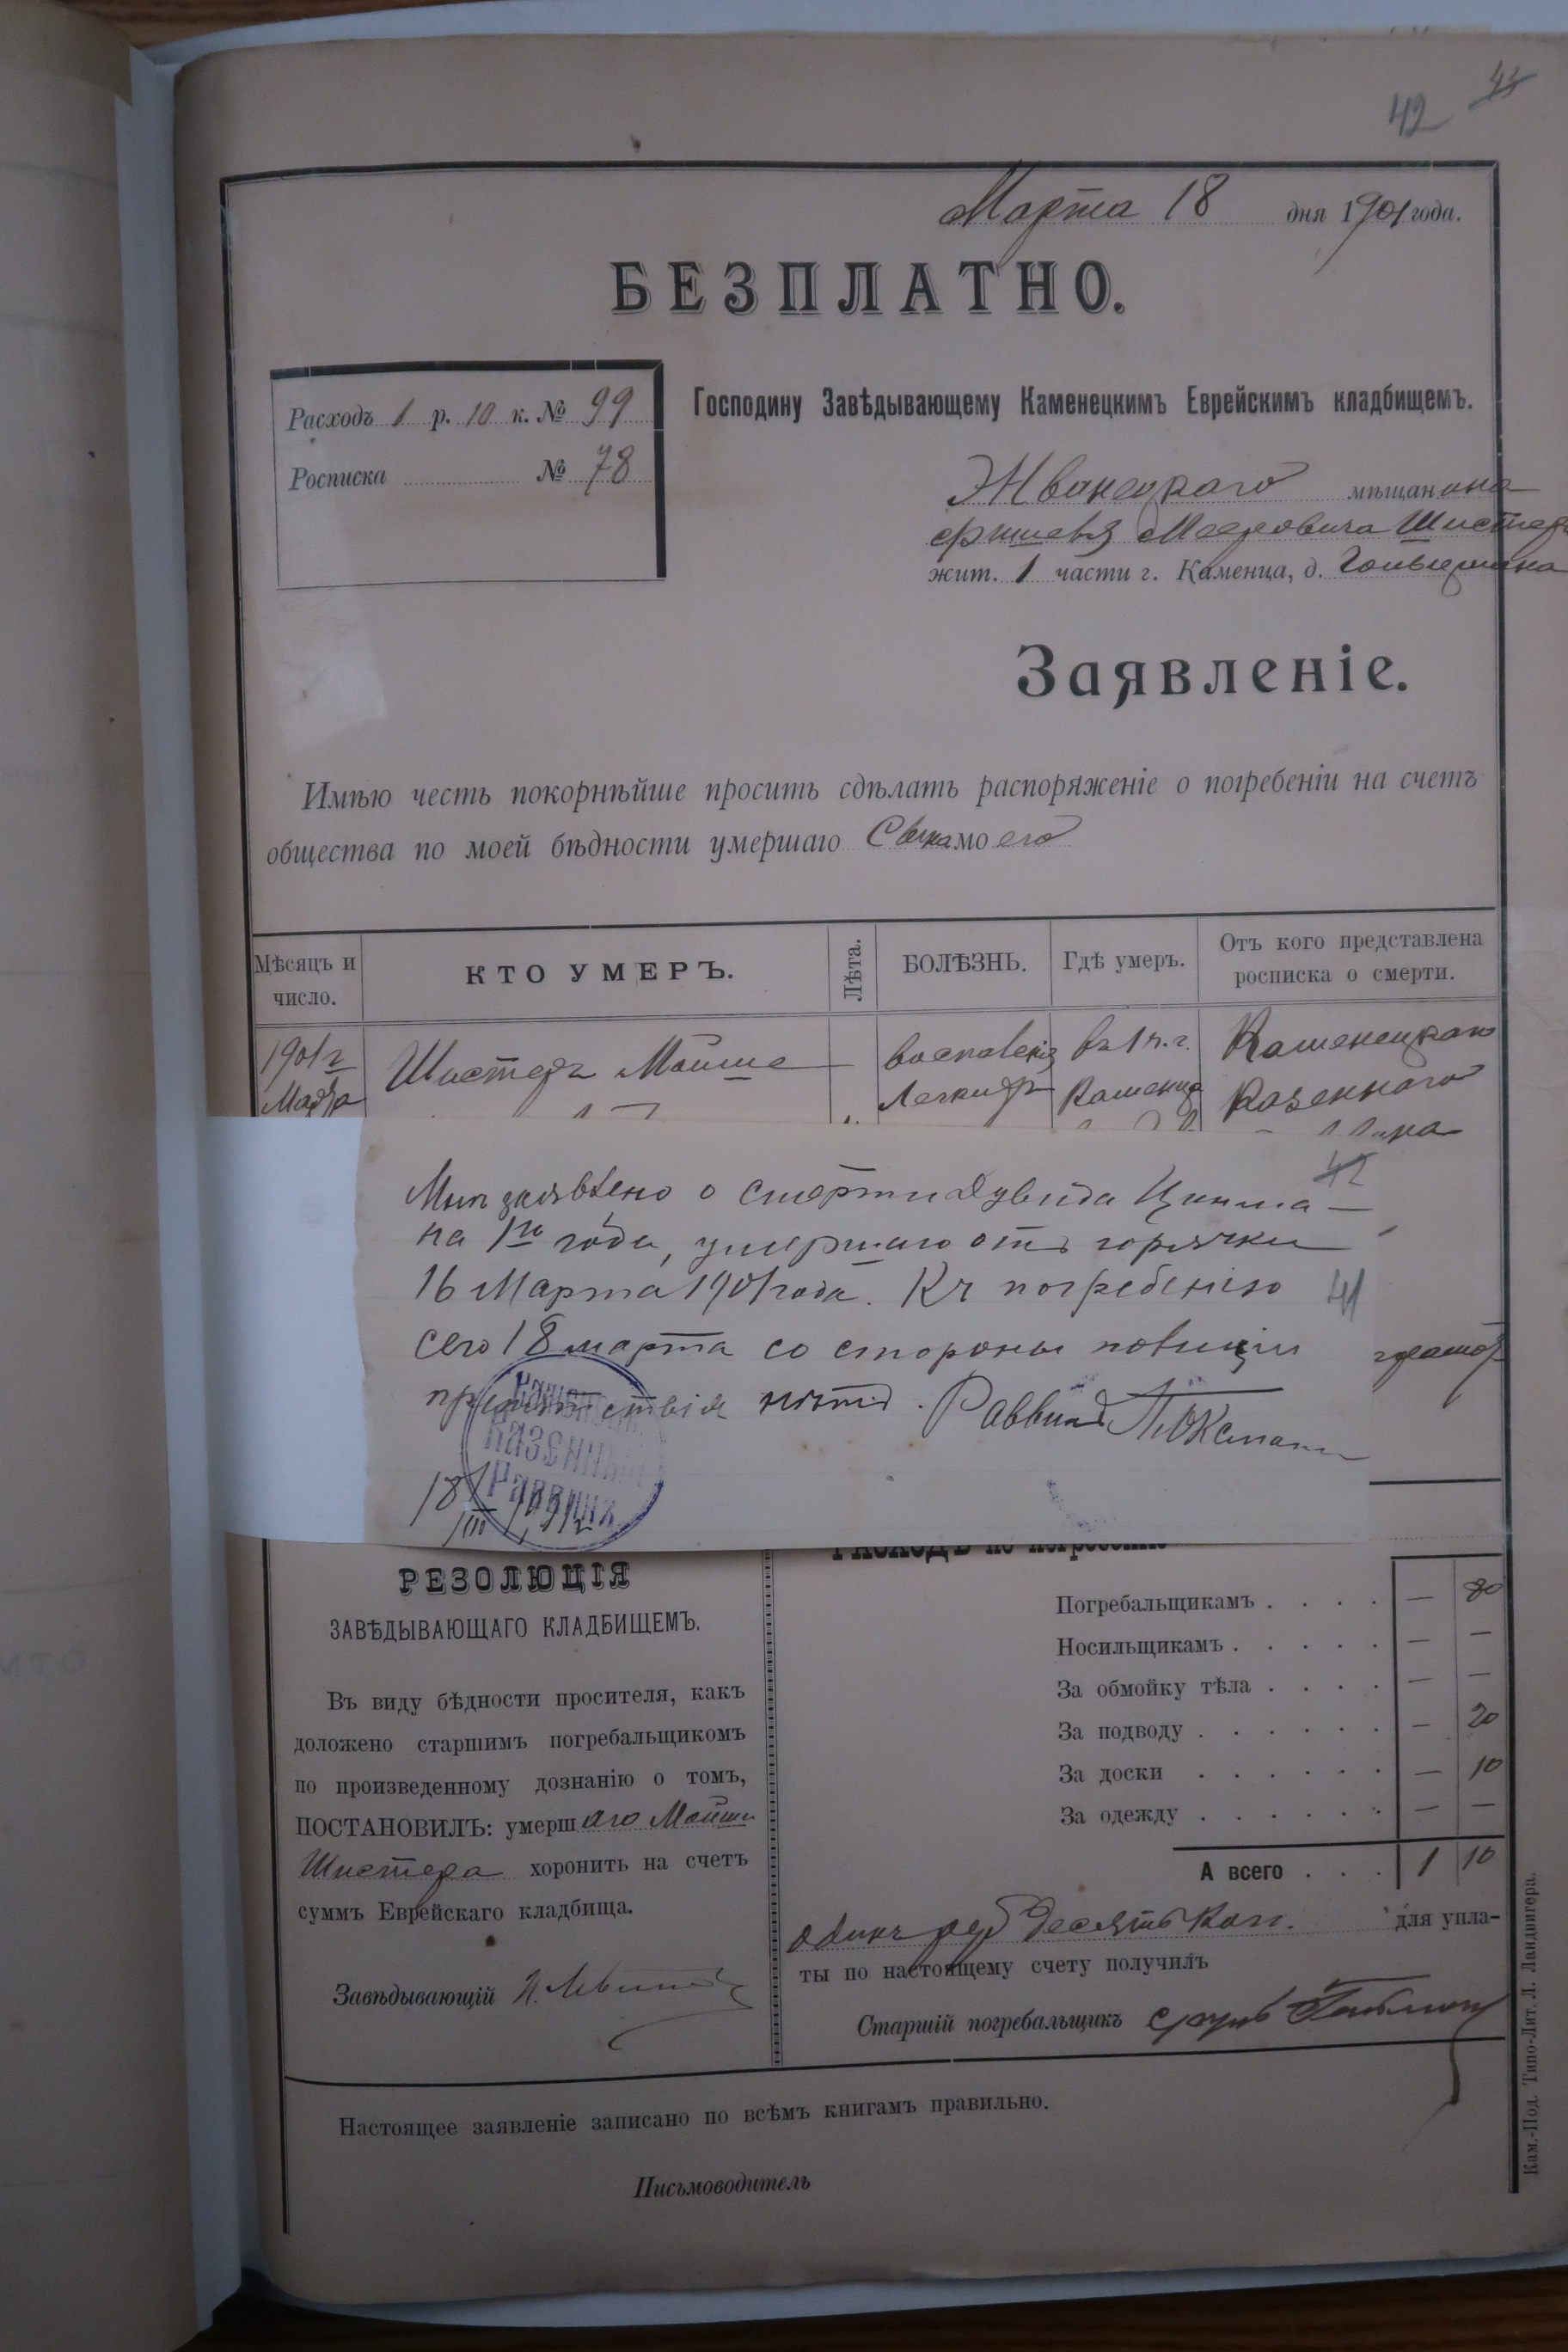 43
42
Марта 18 дня 1901 года.
БЕЗПЛАТНО.
Расходъ 1 р. 10 к. № 99
Росписка № 78
Господину Завѣдывающему Каменецкимъ Еврейскимъ кладбищемъ.
Жванецкаго мѣщанина
Мееровича Шистера
жит. 1 части г. Каменца, д.
Заявленіе.
Имѣю честь покорнѣйше просить сдѣлать распоряженіе о погребеніи на счетъ
общества по моей бѣдности умершаго Сына моего
Мѣсяцъ и число.
КТО УМЕРЪ.
Лѣта.
БОЛѢЗНЬ.
Гдѣ умеръ.
Отъ кого представлена росписка о смерти.
1901 г. Шистеръ Мойше — воспаленія въ 1 ч. г. Каменецкаго
Марта Легкихъ Каменца Казеннаго
42
Мнѣ заявлено о смерти Дувида Цинма-
на 1го года, умершаго отъ горячки
16 Марта 1901 года. Къ погребенію
41
сего 18 марта со стороны полиціи
препятствія нѣтъ. Раввинъ
Казенный
Раввинъ
18/III 1901 г.
РЕЗОЛЮЦІЯ
ЗАВѢДЫВАЮЩАГО КЛАДБИЩЕМЪ.
Въ виду бѣдности просителя, какъ
доложено старшимъ погребальщикомъ
по произведенному дознанію о томъ,
ПОСТАНОВИЛЪ: умершаго Мойши
Шистера хоронить на счетъ
суммъ Еврейскаго кладбища.
Завѣдывающій
Расходъ по погребенію
Погребальщикамъ . . . . — 80
Носильщикамъ . . . . . — —
За обмойку тѣла . . . . — —
За подводу . . . . . . — 20
За доски . . . . . . — 10
За одежду . . . . . . — —
А всего . . . 1 10
одинъ руб десять коп. для упла-
ты по настоящему счету получилъ
Старшій погребальщикъ
Настоящее заявленіе записано по всѣмъ книгамъ правильно.
Письмоводитель
Кам.-Под. Типо-Лит. Л. Ландвигера.